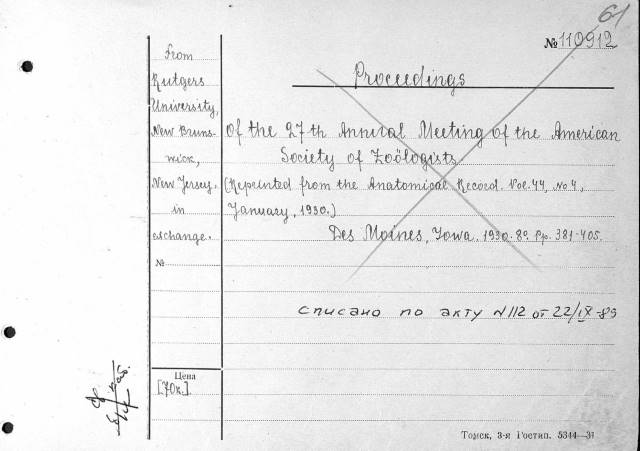 61
№ 110912
From
Rutgers
University,
New Bruns-
wick,
New Jersey.
in
exchange.
№
Proceedings
of the 27th Annual Meeting of the American
Society of Zoölogists.
(Reprinted from the Anatomical Record. Vol. 44, No 4,
January, 1930.)
Des Moines, Iowa. 1930. 8º. Pp. 381-405.
списано по акту N 112 от 22/IX-89
Цена
[70к.].
Томск, 3-я Гостип. 5344—31